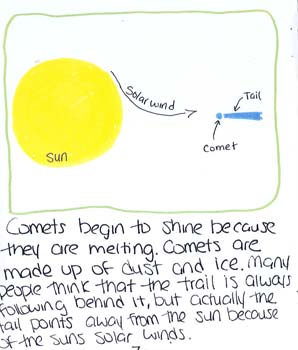 Solar wind
Tail
Comet
Sun
Comets begin to shine because
they are melting. Comets are
made up of dust and ice. Many
people think that the trail is always
following behind it, but actually the
tail points away from the sun because
of the suns solar winds.